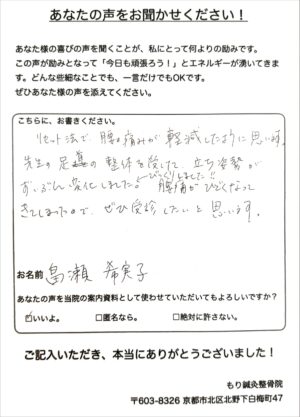 あなたの声をお聞かせください！
あなた様の喜びの声を聞くことが、私にとって何よりの励みです。
この声が励みとなって「今日も頑張ろう！」とエネルギーが湧いてきます。どんな些細なことでも、一言だけでもOKです。
ぜひあなた様の声を添えてください。
こちらに、お書きください。
リセット法で、腰の痛みが軽減したように思います。
先生の足裏の整体を受けて、立ち姿勢が
ずいぶん変化しました。←びっくりしました!! 腰痛がひどくなって
きてしまったので、ぜひ受診したいと思います。
お名前 島瀬 希実子
あなたの声を当院の案内資料として使わせていただいてもよろしいですか？
☑いいよ。 □匿名なら。 □絶対に許さない。
ご記入いただき、本当にありがとうございました！
もり鍼灸整骨院
〒603-8326 京都市北区北野下白梅町47